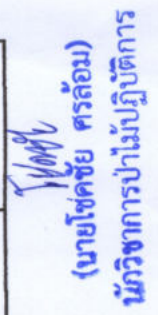 (นายโชคชัย ศรล้อม)
นักวิชาการป่าไม้ปฏิบัติการ